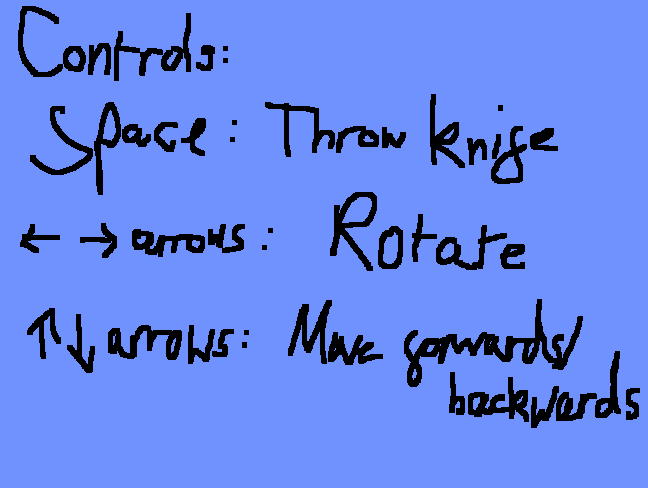 Controls:
Space: Throw knife
← → arrows: Rotate
↑↓ arrows: Move forwards/
backwards